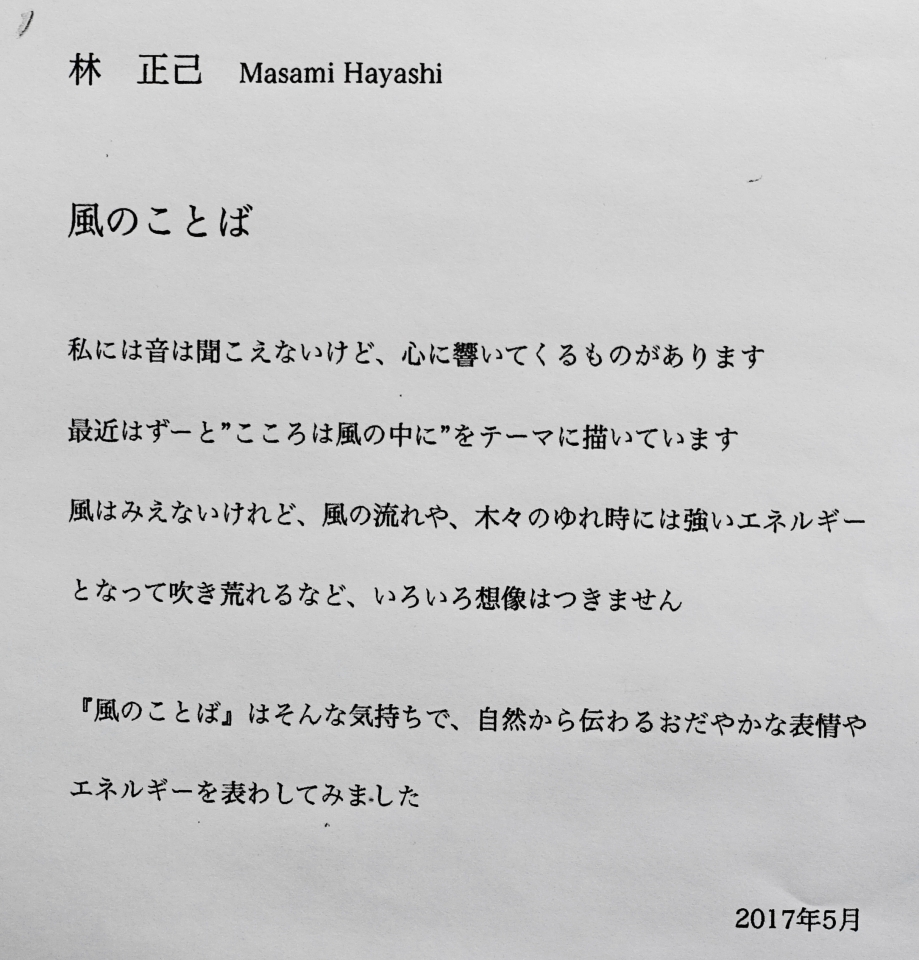 林　正己　Masami Hayashi
風のことば
私には音は聞こえないけど、心に響いてくるものがあります
最近はずーと”こころは風の中に”をテーマに描いています
風はみえないけれど、風の流れや、木々のゆれ時には強いエネルギー
となって吹き荒れるなど、いろいろ想像はつきません
『風のことば』はそんな気持ちで、自然から伝わるおだやかな表情や
エネルギーを表わしてみました
2017年5月